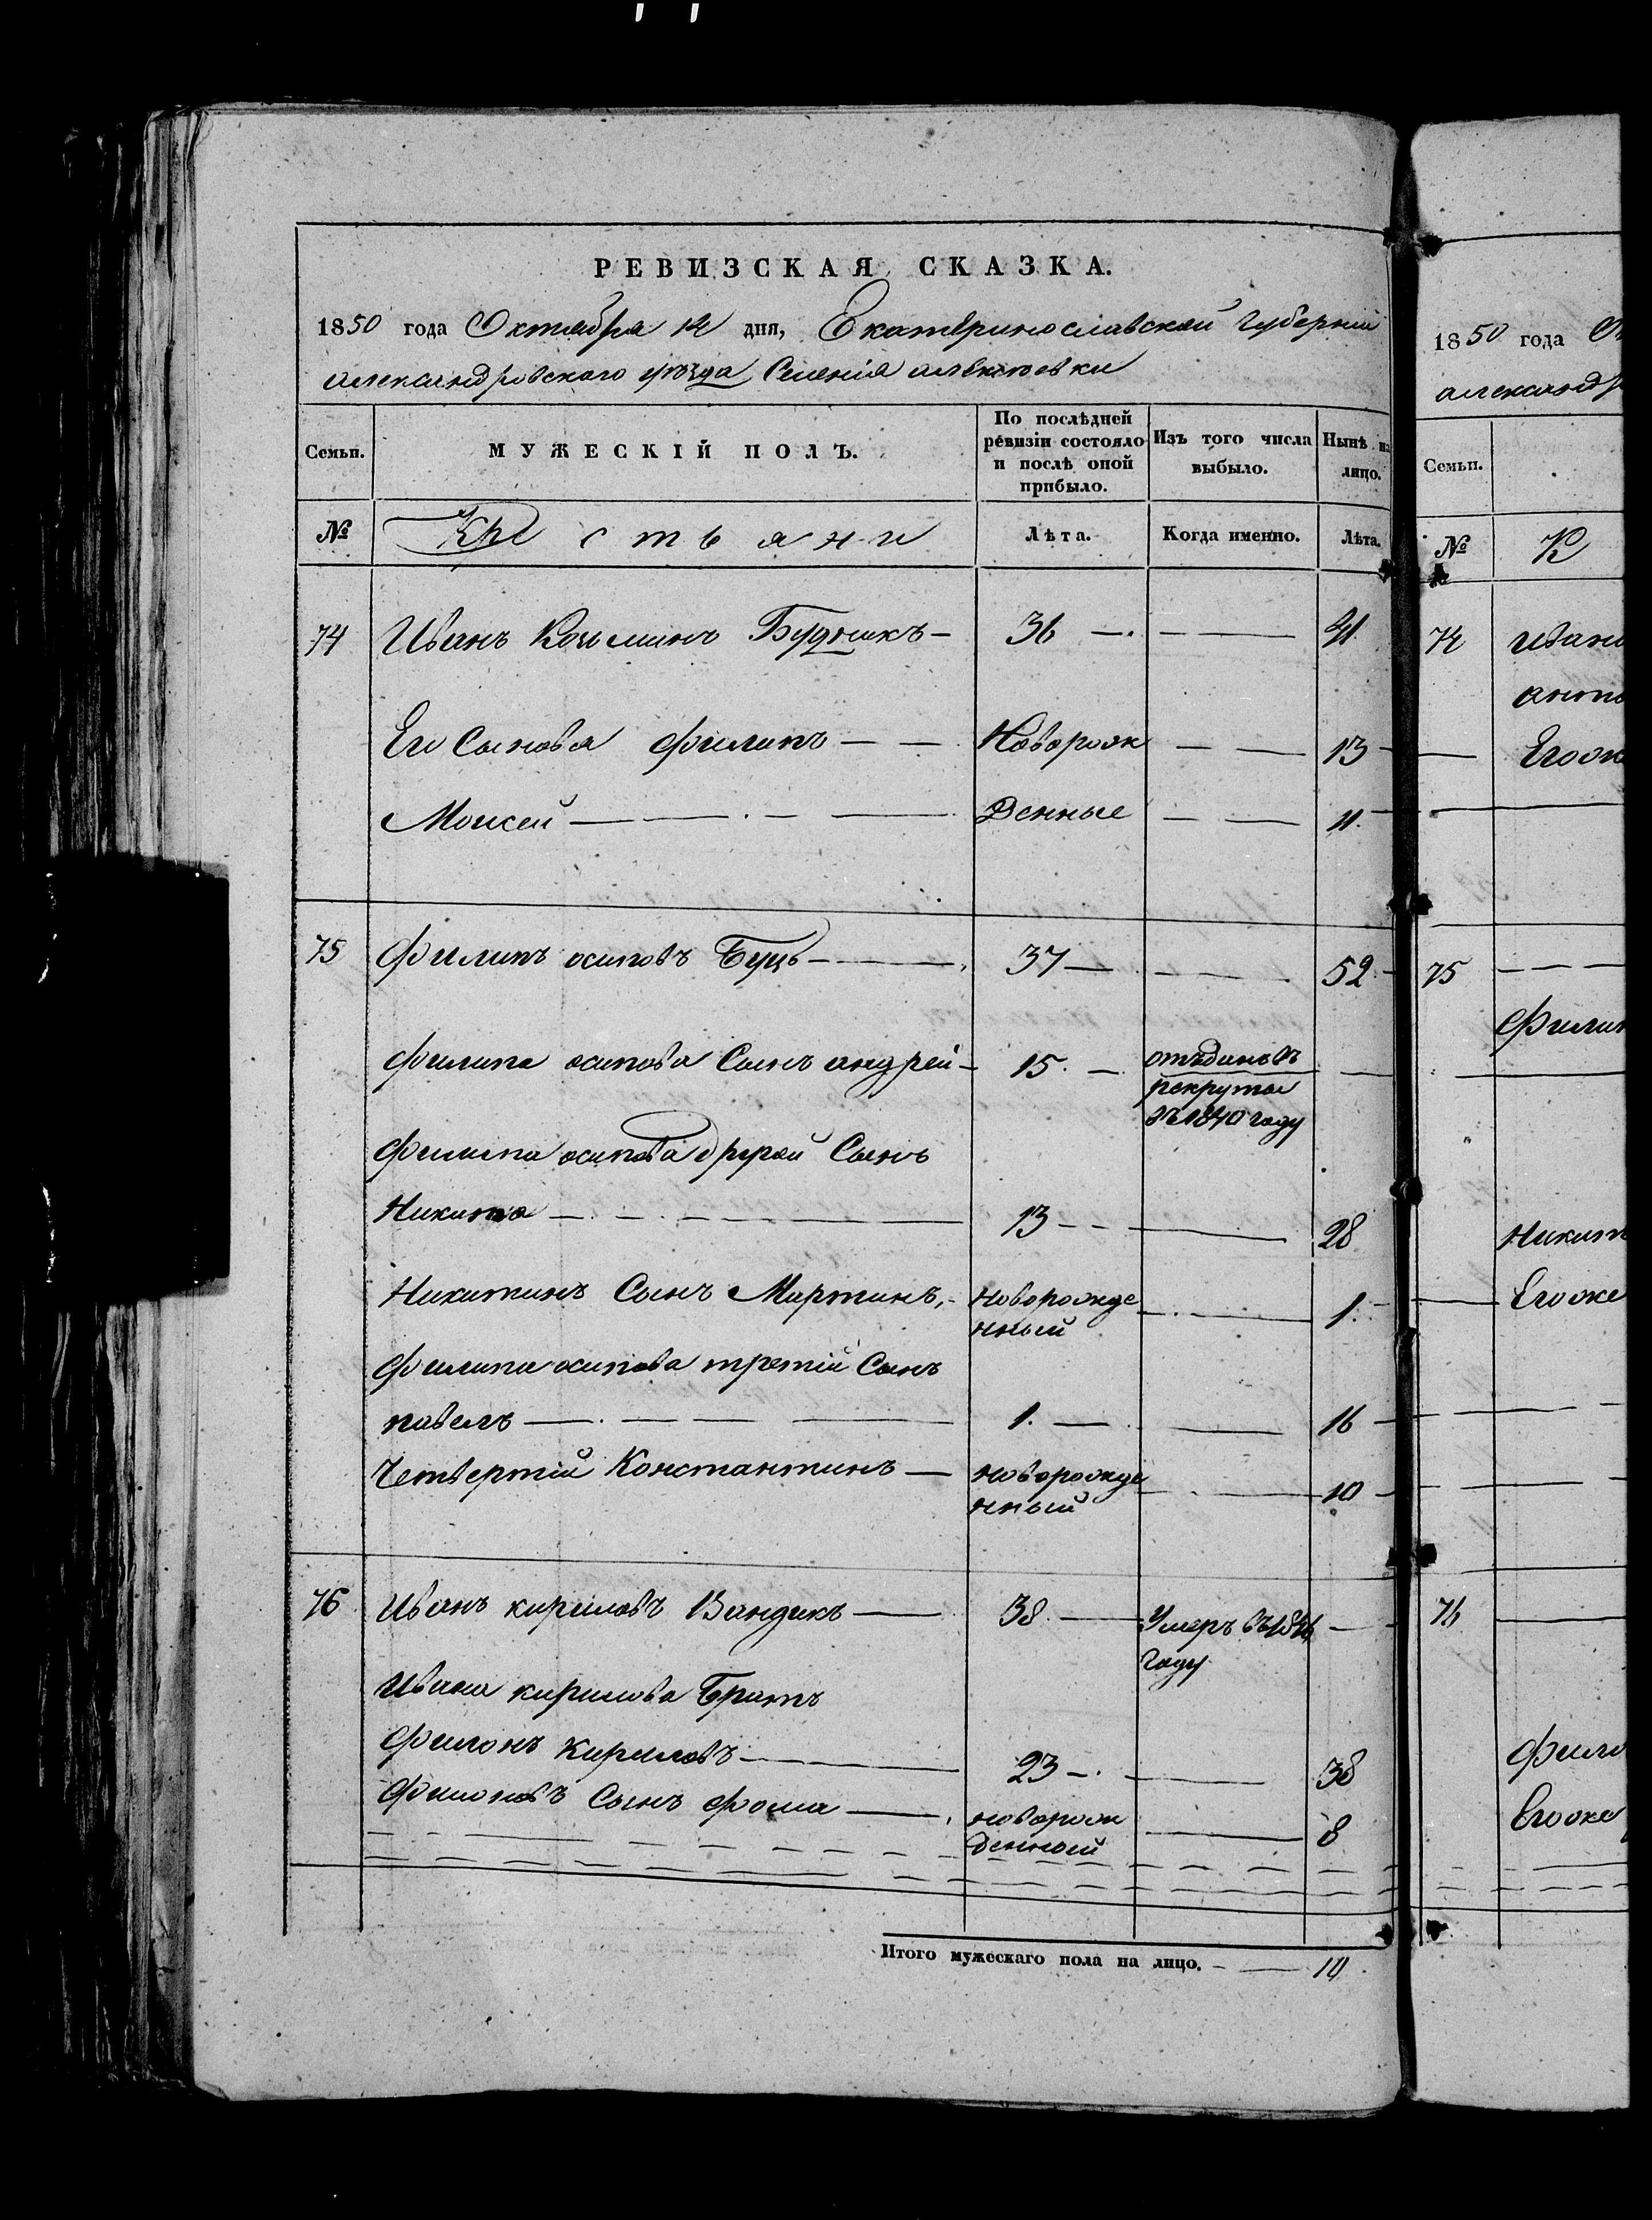 РЕВИЗСКАЯ СКАЗКА.
1850 года Октября 12 дня, Екатеринославской губернии
александровского уезда Селенія алексеевки
Семьи. МУЖЕСКІЙ ПОЛЪ. По послѣдней ревизіи состояло и послѣ оной прибыло. Изъ того числа выбыло. Нынѣ на лицо.
№ Крестьяни Лѣта. Когда именно. Лѣта.
74 Иванъ Козьминъ Будникъ — 36 — 41
Его Сыновья Филипъ — Новорож — 13
Моисей — Денные — 11
75 Филипъ осиповъ Буць — 37 — 52
Филипа осипова Сынъ андрей — 15 — отъданъ въ
рекруты
въ 1840 году
Филипа осипова другой Сынъ
Никита — 13 — 28
Никитинъ Сынъ Мартинъ, — Новорожде — 1
нный
Филипа осипова третій Сынъ
павелъ — 1 — 16
Четвертій Константинъ — новорожде — 10
нный
76 Иванъ кириловъ Вандикъ — 38 — Умеръ въ 1846 —
году
Ивана кирилова Братъ
Филонъ Кириловъ — 23 — 38
Филоновъ Сынъ Фома — новорож — 8
денный
Итого мужескаго пола на лицо. — 10
1850 года
александр
Семьи.
№ К
74 Ивана
анто
Егоже
75
Филип
Никит
Егоже
76
Фило
Егоже